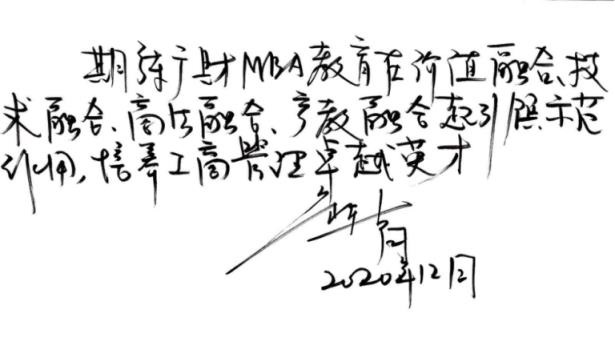 期待广财MBA教育在价值融合、技
术融合、商法融合、产教融合起引领示范
作用,培养工商管理卓越英才
2020年12月